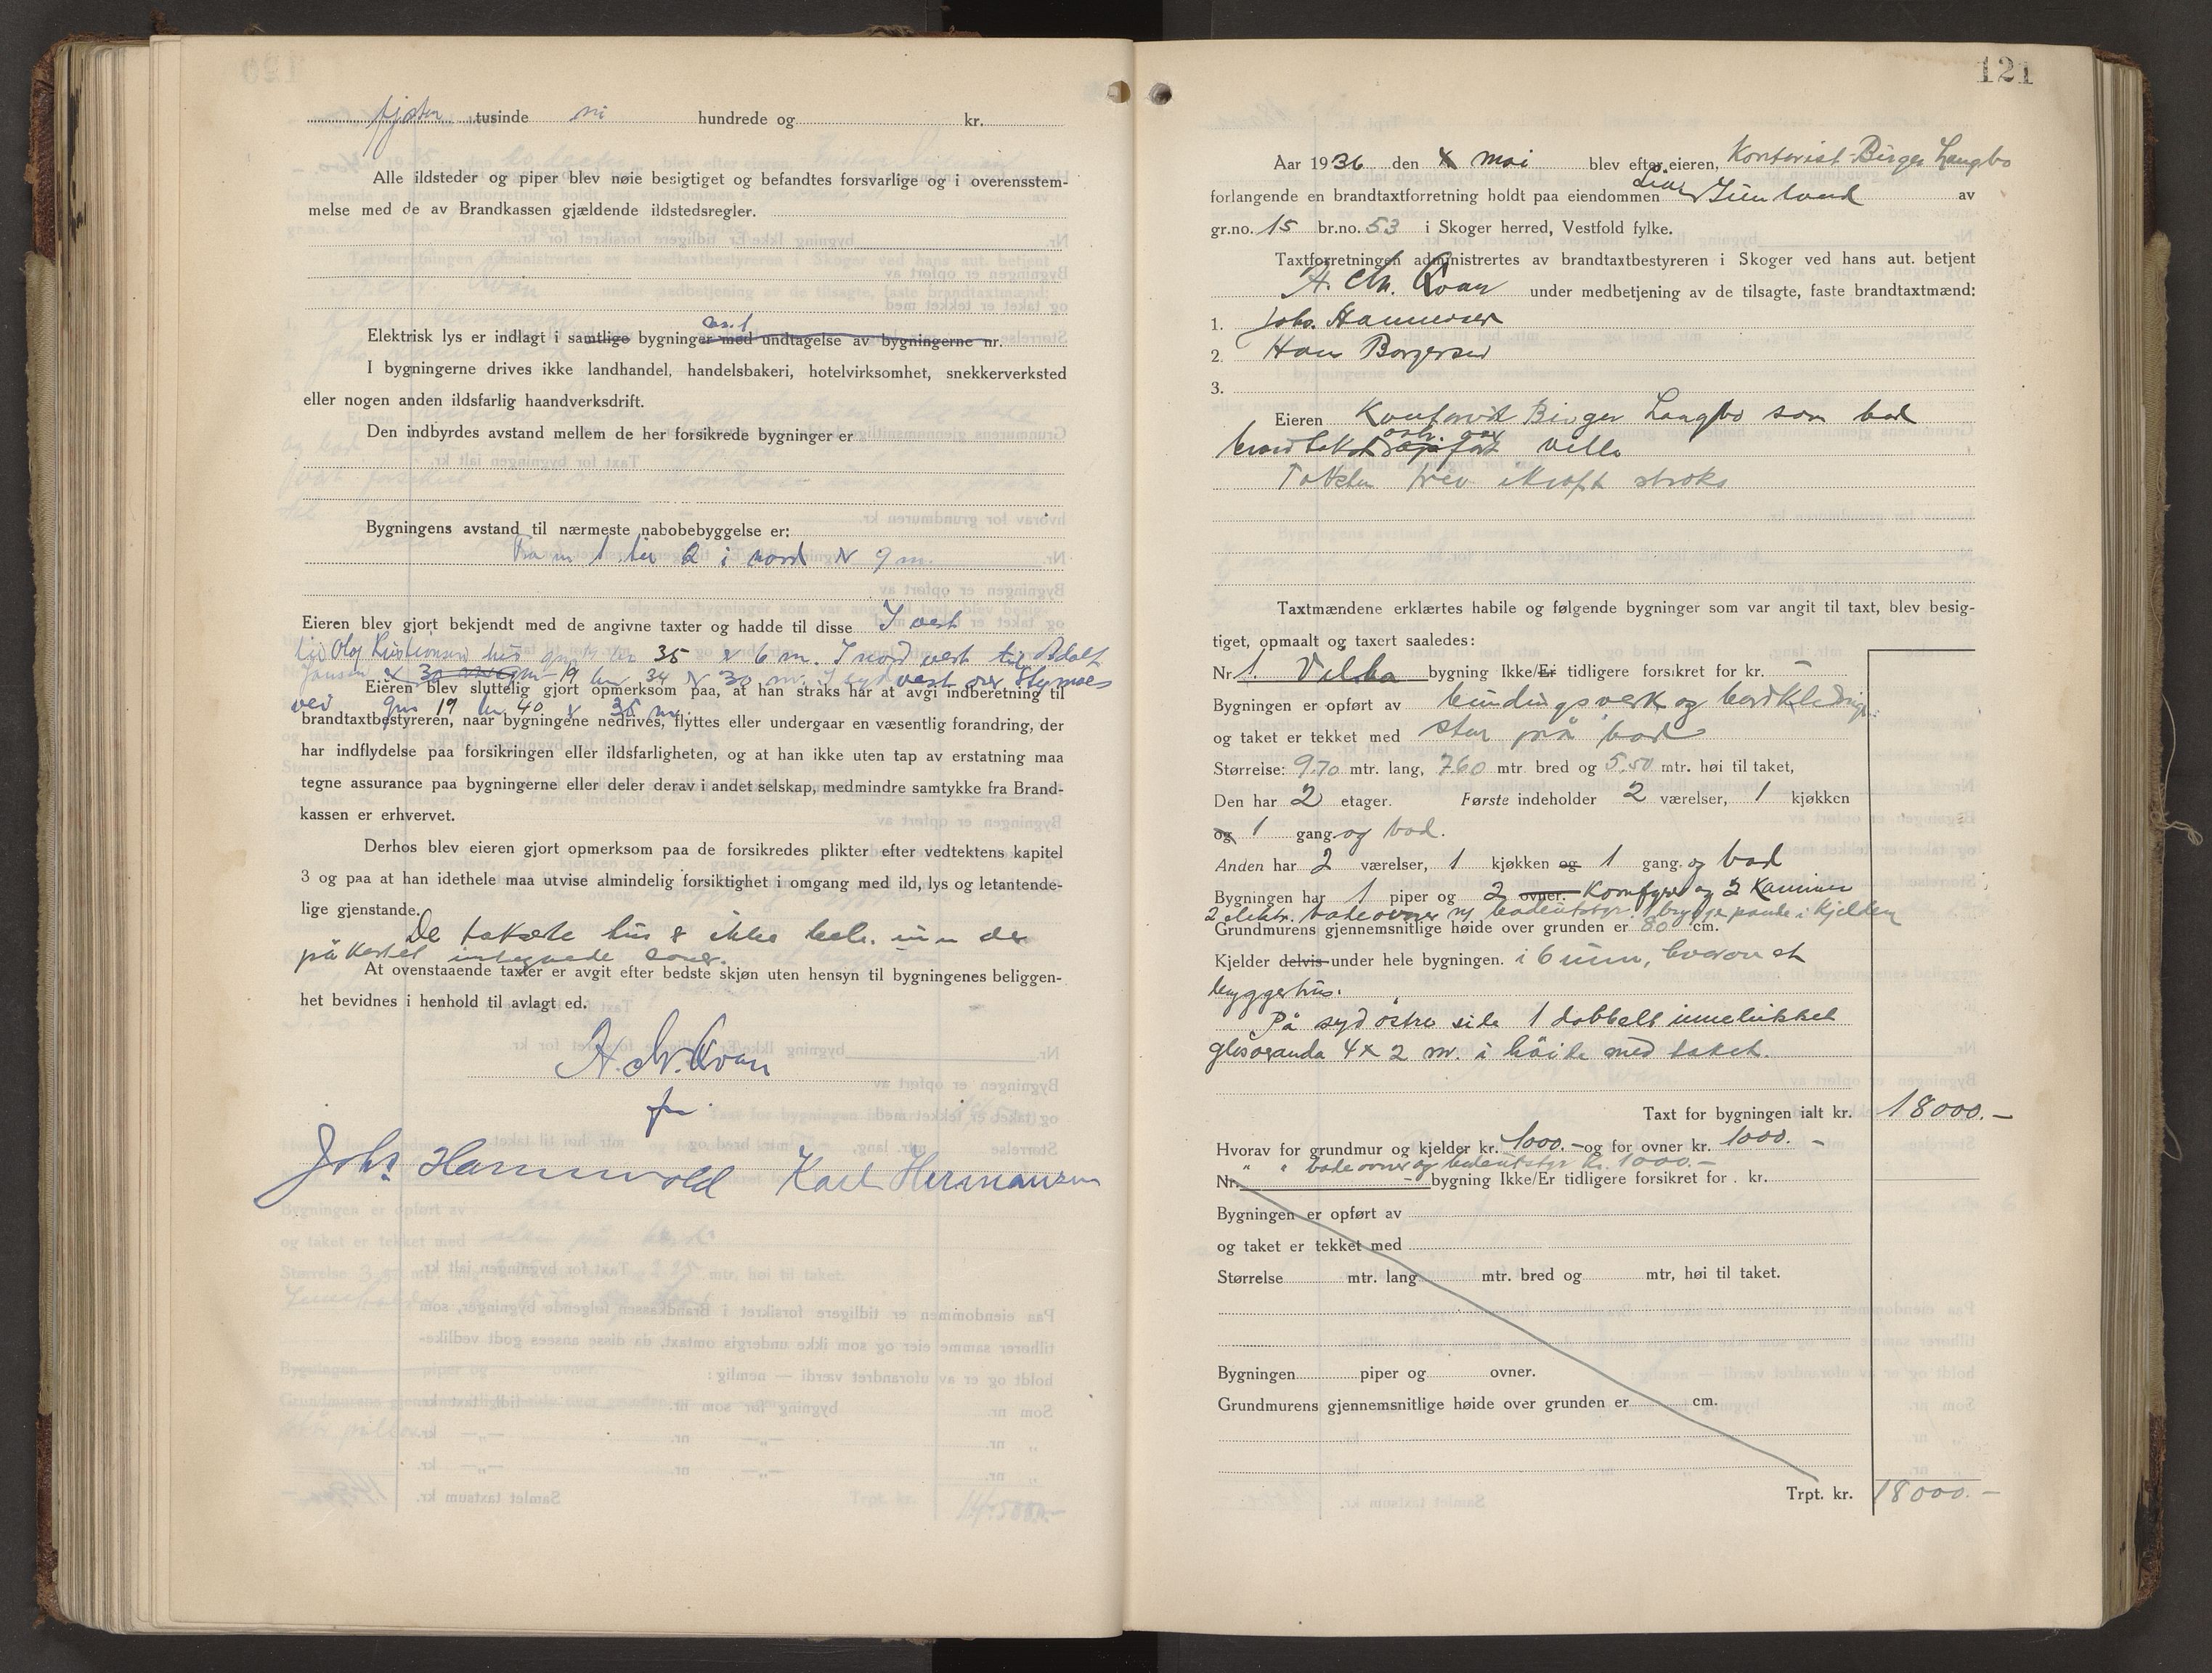 fjorten tusinde ni hundrede og kr.
Alle ildsteder og piper blev nøie besigtiget og befandtes forsvarlige og i overensstem-
melse med de av Brandkassen gjældende ildstedsregler.
nr. 1
Elektrisk lys er indlagt i samtlige bygninger med undtagelse av bygningerne nr.
I bygningerne drives ikke landhandel, handelsbakeri, hotelvirksomhet, snekkerverksted
eller nogen anden ildsfarlig haandverksdrift.
Den indbyrdes avstand mellem de her forsikrede bygninger er
Bygningens avstand til nærmeste nabobebyggelse er:
Fra nr 1 til 2 i nord 9 m.
Eieren blev gjort bekjendt med de angivne taxter og hadde til disse I vest
til Olaf Kristiansens hus gnr 19 bnr 35 6 m. I nord vest til Adolf
Jansen 19 bnr 34 30 m. I syd vest over
Eieren blev sluttelig gjort opmerksom paa, at han straks har at avgi indberetning til
vei gnr 19 bnr 40 35 m.
brandtaxtbestyreren, naar bygningene nedrives, flyttes eller undergaar en væsentlig forandring, der
har indflydelse paa forsikringen eller ildsfarligheten, og at han ikke uten tap av erstatning maa
tegne assurance paa bygningerne eller deler derav i andet selskap, medmindre samtykke fra Brand-
kassen er erhvervet.
Derhos blev eieren gjort opmerksom paa de forsikredes plikter efter vedtektens kapitel
3 og paa at han idethele maa utvise almindelig forsiktighet i omgang med ild, lys og letantende-
lige gjenstande.
De takserte hus er ikke
på kartet
At ovenstaaende taxter er avgit efter bedste skjøn uten hensyn til bygningenes beliggen-
het bevidnes i henhold til avlagt ed.
A. Chr. Kvan
fr.
Johs. Hamnvold Karl Hermansen
121
Aar 1936 den 4 mai blev efter eieren, Kontorist Birger Langbo
forlangende en brandtaxtforretning holdt paa eiendommen av
gr.no. 15 br.no. 53 i Skoger herred, Vestfold fylke.
Taxtforretningen administrertes av brandtaxtbestyreren i Skoger ved hans aut. betjent
A. Chr. Kvan under medbetjening av de tilsagte, faste brandtaxtmænd:
1. Johs. Hannevold
2. Hans Borgersen
3.
Eieren Kontorist Birger Langbo som bad
villa
Taksten blev ikraft straks
Taxtmændene erklærtes habile og følgende bygninger som var angit til taxt, blev besig-
tiget, opmaalt og taxert saaledes:
Nr 1. Villa bygning Ikke/Er tidligere forsikret for kr. —
Bygningen er opført av bindingsverk og bordkledning
og taket er tekket med sten på bord
Størrelse: 9.70 mtr. lang, 7.60 mtr bred og 5.50 mtr. høi til taket,
Den har 2 etager. Første indeholder 2 værelser, 1 kjøkken
og 1 gang og bad.
Anden har 2 værelser, 1 kjøkken og 1 gang. og bad
Bygningen har 1 piper og 2 ovner. Komfyrer og 2 Kaminer
2 elektr. badeovner og badeutstyr. 1 bryggepande i Kjelderen
Grundmurens gjennemsnitlige høide over grunden er 80 cm.
Kjelder delvis under hele bygningen. i 6 rum, hvorav et
bryggerhus.
På syd østre side 1 dobbelt innelukket
glasveranda 4 x 2 m. i høide med taket.
Taxt for bygningen ialt kr. 18000.—
Hvorav for grundmur og kjelder kr. 1000.— og for ovner kr. 1000. —
" " badeovner og badeutstyr kr. 1000.—
Nr. bygning Ikke/Er tidligere forsikret for . kr.
Bygningen er opført av
og taket er tekket med
Størrelse mtr. lang mtr. bred og mtr, høi til taket.
Bygningen piper og ovner.
Grundmurens gjennemsnitlige høide over grunden er cm.
Trpt. kr. 18000.—